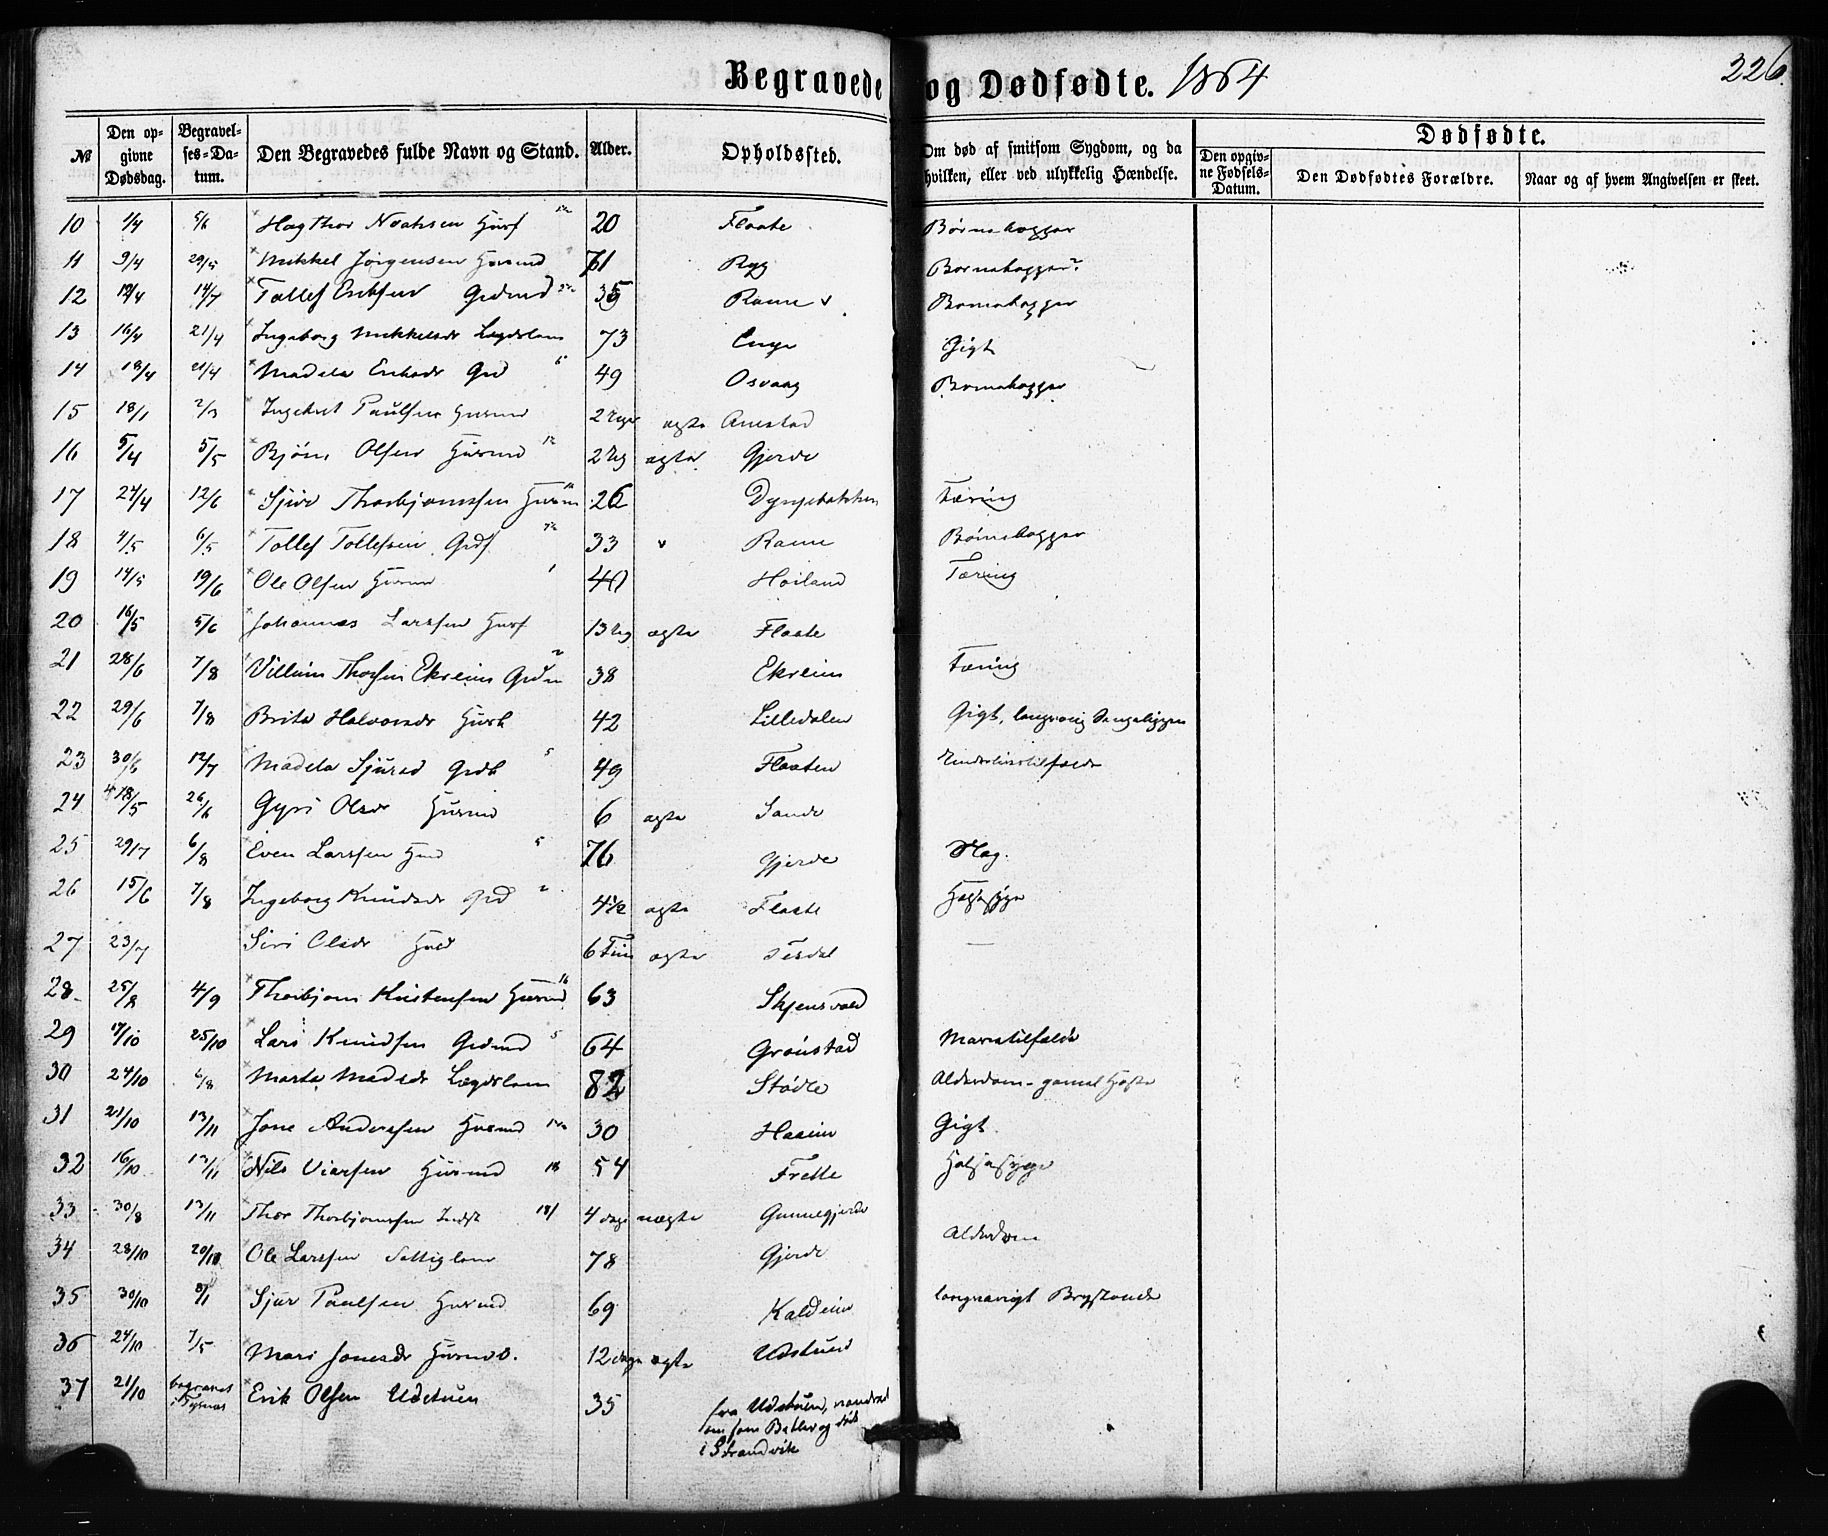 Begravede og Dødfødte. 1864
226.
No
Den opgivne Dødsdag.
Begravelses-Datum.
Den Begravedes fulde Navn og Stand.
Alder.
Opholdssted.
Om død af smitsom Sygdom, og da hvilken, eller ved ulykkelig Hændelse.
Dødfødte.
Den opgivne Fødsels-Datum.
Den Dødfødtes Forældre.
Naar og af hvem Angivelsen er skeet.
10 1/4 5/6 Noahsen Husf 20 Flaate Børnekopper
11 9/4 29/5 Mikkel Jørgensen Husmd 71 Ryg Børnekopper?
12 12/4 14/7 Tollef Eriksen Grdmd 35 Rame Børnekopper
13 16/4 21/4 Ingeborg Mikkelsdr Lægdslem 73 Enge Gigt
14 19/4 21/4 Madela Eriksdr Grd 49 Osvaag Børnekopper
15 18/1 2/3 Paulsen Husmd 2 Uger ægte
16 5/4 5/5 Bjørn Olsen Husmd 2 Ug ægte Gjerde
17 24/4 12/6 Sjur Thorbjørnsen Husm 26 Tæring
18 4/5 6/5 Tollef Tollefsen Grdf 33 Rame Børnekopper
19 14/5 19/6 Ole Olsen Husmd 40 Høiland Tæring
20 16/5 5/6 Johannes Larssen Husf 13 Ug ægte Flaate
21 28/6 7/8 Villum Ekreim Grdm 38 Ekreim Tæring
22 29/6 7/8 Brita Halvorsdr Husk 42 Lilledalen Gigt, langvarig Sengeliggen
23 30/6 12/7 Madela Sjursd Grdk 49 Flaaten Underlivstilfælde
24 18/5 26/6 Gyri Olsdr Husmd 6 ægte Sande
25 29/7 6/8 Even Larssen 76 Gjerde Slag.
26 15/6 7/8 Ingeborg Knudsdr Grd 4 1/2 ægte Flaate Halssyge
27 23/7 Siri Olsdr 6 Tim ægte Tesdal
28 25/8 4/9 Thorbjørn Kristensen Husmd 63 Skjensvold
29 17/10 25/10 Lars Knudsen Grdmd 64 Grønstad Mavetilfælde
30 24/10 6/8 Marta Madsdr Lægdslem 82 Stødle Alderdom - gamel Hoste
31 21/10 13/11 Jone Anderssen Husmd 30 Haaeim Gigt
32 16/10 13/11 Nils Viarsen Husmd 54 Frette Halssyge
33 30/8 13/11 Thor Thorbjørnssen Indst 4 dage uægte Gunnegjerde
34 28/10 20/10 Ole Larssen Fattiglem 78 Gjerde Alderdom
35 30/10 Sjur Paulsen Husmd 69 Kaldeim langvarigt Brystonde
36 24/10 7/5 Mari Jonesdr Husmd. 12 dage ægte Udstuen
37 21/10 begravet i Tysnes Erik Olsen Udstuen 35 fra Udstuen, vandred om som Betler og død i Strandvik